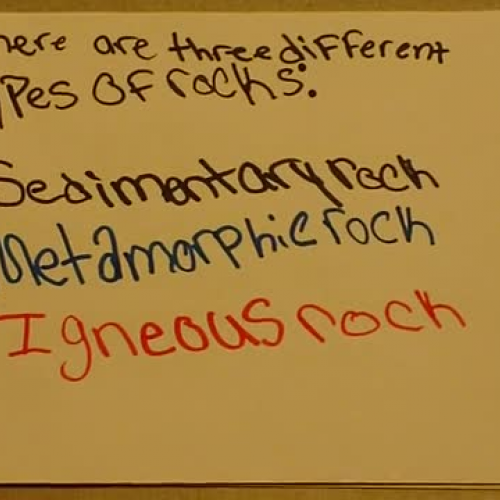 here are three different
ypes of rocks:
Sedimentary rock
Metamorphic rock
Igneous rock